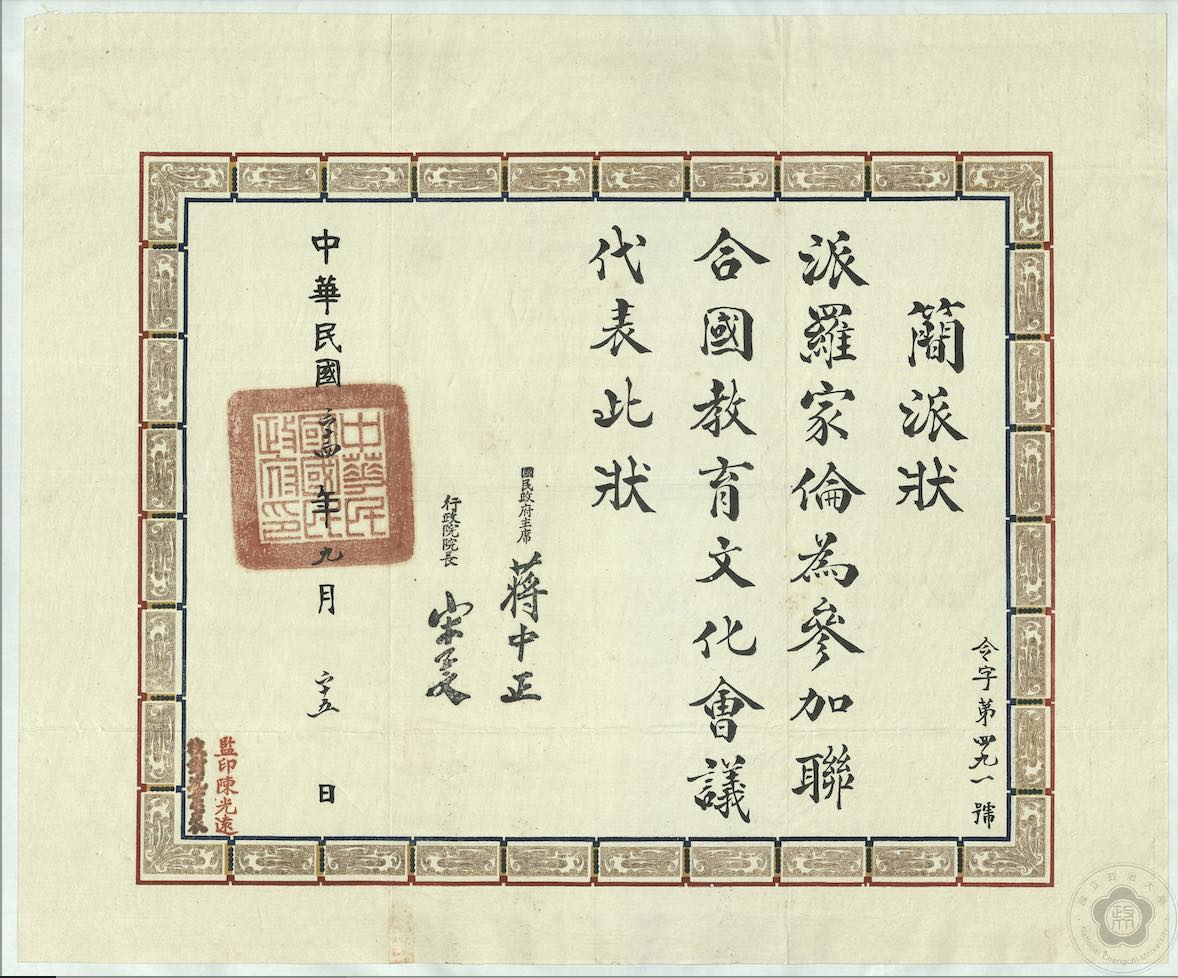 令字第四九一號
簡派狀
派羅家倫為參加聯
合國教育文化會議
代表此狀
國民政府主席 蔣中正
行政院院長 宋子文
中華民國三十四年九月二十五日
中華民
國國民
政府印
監印陳光遠
校對
國立政治大學
National Chengchi University